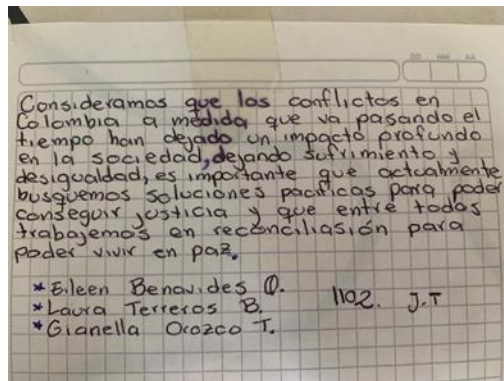 DD MM AA
Consideramos que los conflictos en
Colombia a medida que va pasando el
tiempo han dejado un impacto profundo
en la sociedad, dejando sufrimiento y
desigualdad, es importante que actualmente
busquemos soluciones pacíficas para poder
conseguir justicia y que entre todos
trabajemos en reconciliasión para
poder vivir en paz.
* Eileen Benavides O.
* Laura Terreros B. 1102. J.T
* Gianella Orozco T.